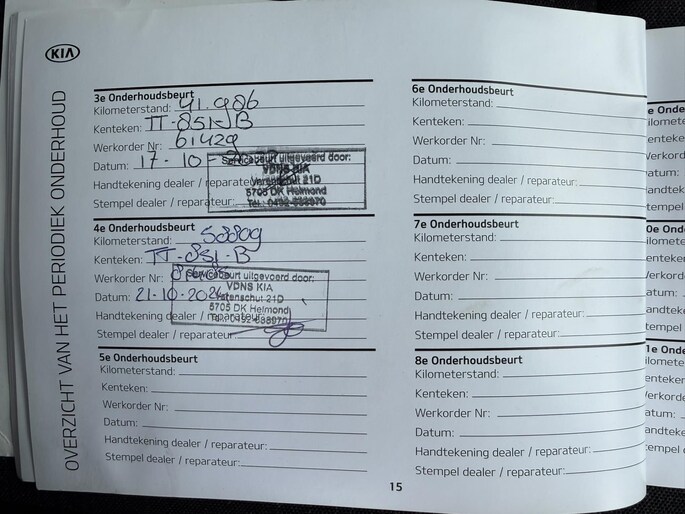 KIA
OVERZICHT VAN HET PERIODIEK ONDERHOUD
3e Onderhoudsbeurt
Kilometerstand: 41.986
Kenteken:
Werkorder Nr: 61429
Datum: 17-10-
Handtekening dealer / reparateur:
Stempel dealer / reparateur:
Servicebeurt uitgevoerd door:
VDNS KIA
21D
5705 DK Helmond
Tel.: 0492-
4e Onderhoudsbeurt
Kilometerstand: 58809
Kenteken:
Werkorder Nr:
Datum: 21-10-2024
Handtekening dealer / reparateur:
Stempel dealer / reparateur:
Servicebeurt uitgevoerd door:
VDNS KIA
21D
5705 DK Helmond
Tel.: 0492-
5e Onderhoudsbeurt
Kilometerstand:
Kenteken:
Werkorder Nr:
Datum:
Handtekening dealer / reparateur:
Stempel dealer / reparateur:
6e Onderhoudsbeurt
Kilometerstand:
Kenteken:
Werkorder Nr:
Datum:
Handtekening dealer / reparateur:
Stempel dealer / reparateur:
7e Onderhoudsbeurt
Kilometerstand:
Kenteken:
Werkorder Nr:
Datum:
Handtekening dealer / reparateur:
Stempel dealer / reparateur:
8e Onderhoudsbeurt
Kilometerstand:
Kenteken:
Werkorder Nr:
Datum:
Handtekening dealer / reparateur:
Stempel dealer / reparateur:
15